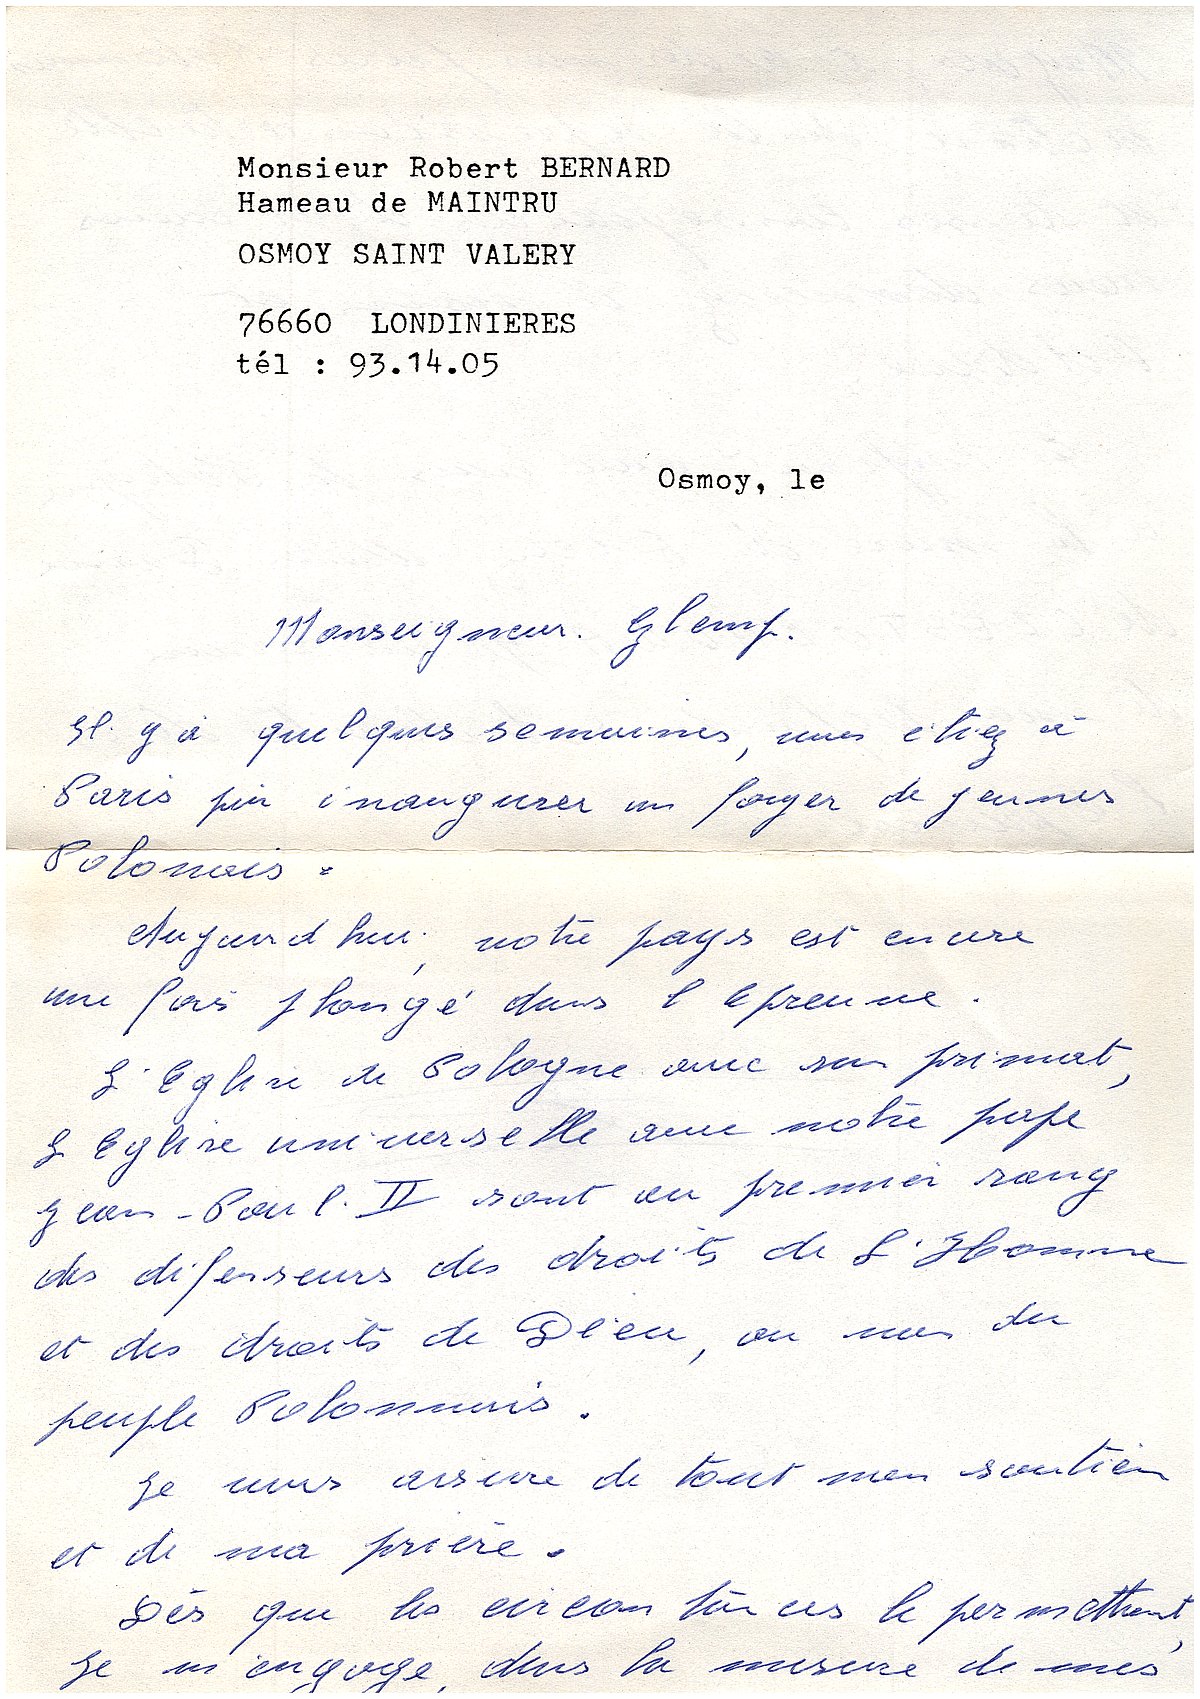 Monsieur Robert BERNARD
Hameau de MAINTRU
OSMOY SAINT VALERY
76660 LONDINIERES
tél : 93.14.05
Osmoy, le
Monseigneur. Glemp.
Il y a quelques semaines, vous étiez à
Paris pour inaugurer un foyer de jeunes
Polonais.
Aujourd'hui, notre pays est encore
une fois plongé dans l'épreuve.
L'Eglise de Pologne avec son primat,
L'Eglise universelle avec notre pape
Jean-Paul. II sont au premier rang
des défenseurs des droits de L'Homme
et des droits de Dieu, au nom du
peuple Polonnais.
Je vous assure de tout mon soutien
et de ma prière.
Dès que les circonstances le permettront,
Je m'engage, dans la mesure de mes